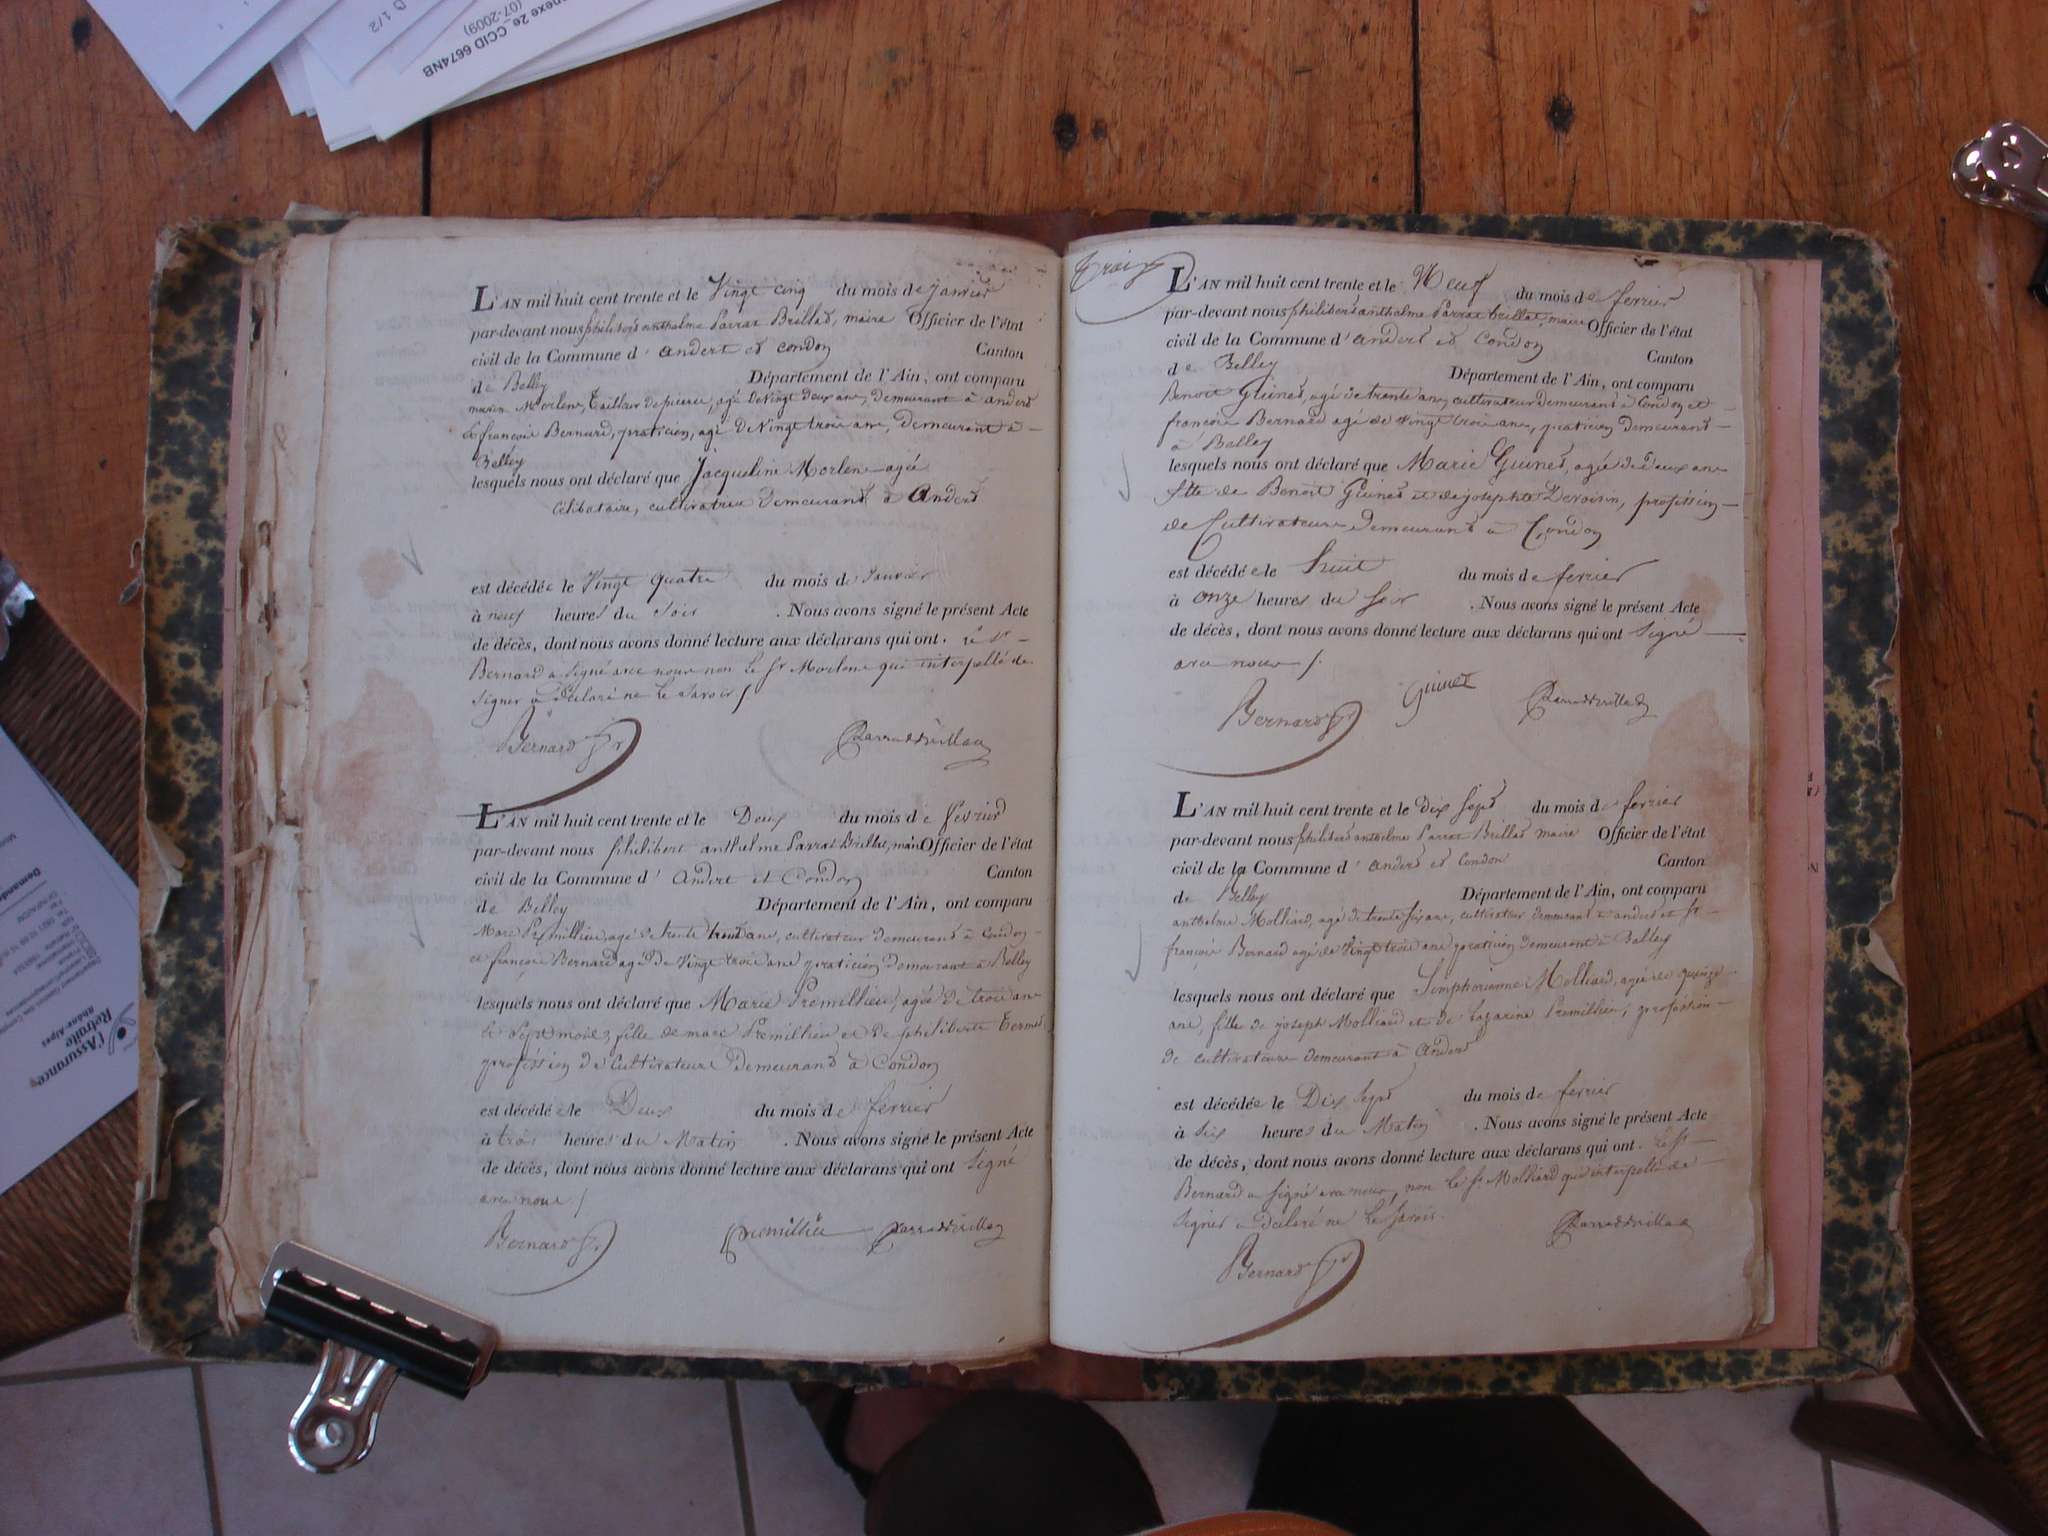 nnexe 2e_CCID 6674NB
(07-2009)
D 1/2
L'AN mil huit cent trente et le Vingt cinq du mois de janvier
par-devant nous philibert anthelme Parrat Brillat, maire Officier de l'état
civil de la Commune d' andert et condon Canton
de Belley Département de l'Ain, ont comparu
Morlene, Tailleur de pierre, agé de Vingt deux ans, demeurant à andert
et françois Bernard, praticien, agé de Vingt trois ans, demeurant à
Belley
lesquels nous ont déclaré que Jacqueline Morlene agée
Célibataire, cultivatrice demeurant à Andert
est décédée le Vingt quatre du mois de Janvier
à neuf heures du Soir . Nous avons signé le présent Acte
de décès, dont nous avons donné lecture aux déclarans qui ont. le Sr
Bernard a signé avec nous non le Sr Morlene qui interpellé de
signer a déclaré ne le savoir /
Bernard fr Parrat Brillat
L'AN mil huit cent trente et le Deux du mois de février
par-devant nous philibert anthelme Parrat Brillat, maire Officier de l'état
civil de la Commune d' Andert et Condon Canton
de Belley Département de l'Ain, ont comparu
Marc Premillieu, agé de trente ans, cultivateur demeurant à Condon
et françois Bernard agé de Vingt trois ans praticien demeurant à Belley
lesquels nous ont déclaré que Marie Premillieu, agée de trois ans
et Sept mois, fille de marc Premillieu et de philiberte
profession de Cultivateurs Demeurant à Condon
est décédée le Deux du mois de février
à trois heures du Matin . Nous avons signé le présent Acte
de décès, dont nous avons donné lecture aux déclarans qui ont signé
avec nous /
Bernard fr Premillieu Parrat Brillat
Trois
L'AN mil huit cent trente et le Neuf du mois de fevrier
par-devant nous philibert anthelme Parrat brillat, maire Officier de l'état
civil de la Commune d' andert et Condon Canton
de Belley Département de l'Ain, ont comparu
Benoit Guinet, agé de trente ans, cultivateur demeurant à Condon et
françois Bernard agé de vingt trois ans, praticien demeurant
à Belley
lesquels nous ont déclaré que Marie Guinet, agée de deux ans
fille de Benoit Guinet et de josephte Devoisin, profession
de Cultivateurs demeurant à Condon
est décédée le huit du mois de fevrier
à onze heures du soir . Nous avons signé le présent Acte
de décès, dont nous avons donné lecture aux déclarans qui ont signé
avec nous /.
Bernard fr Guinet Parrat Brillat
L'AN mil huit cent trente et le dix sept du mois de fevrier
par-devant nous philibert anthelme Parrat Brillat maire Officier de l'état
civil de la Commune d' andert et Condon Canton
de Belley Département de l'Ain, ont comparu
anthelme Molliard, agé de trente six ans, cultivateur demeurant à andert et Sr
françois Bernard agé de Vingt trois ans praticien demeurant à Belley
lesquels nous ont déclaré que Simphorienne Molliard, agée de quinze
ans, fille de joseph Molliard et de Lazarine Premillieu, profession
de cultivateurs demeurant à Andert
est décédée le Dix Sept du mois de fevrier
à six heures du Matin . Nous avons signé le présent Acte
de décès, dont nous avons donné lecture aux déclarans qui ont. le Sr
Bernard a signé avec nous, non le Sr Molliard qui interpellé de
signer a déclaré ne le savoir.
Bernard fr Parrat Brillat
l'Assurance
Retraite
Rhône-Alpes